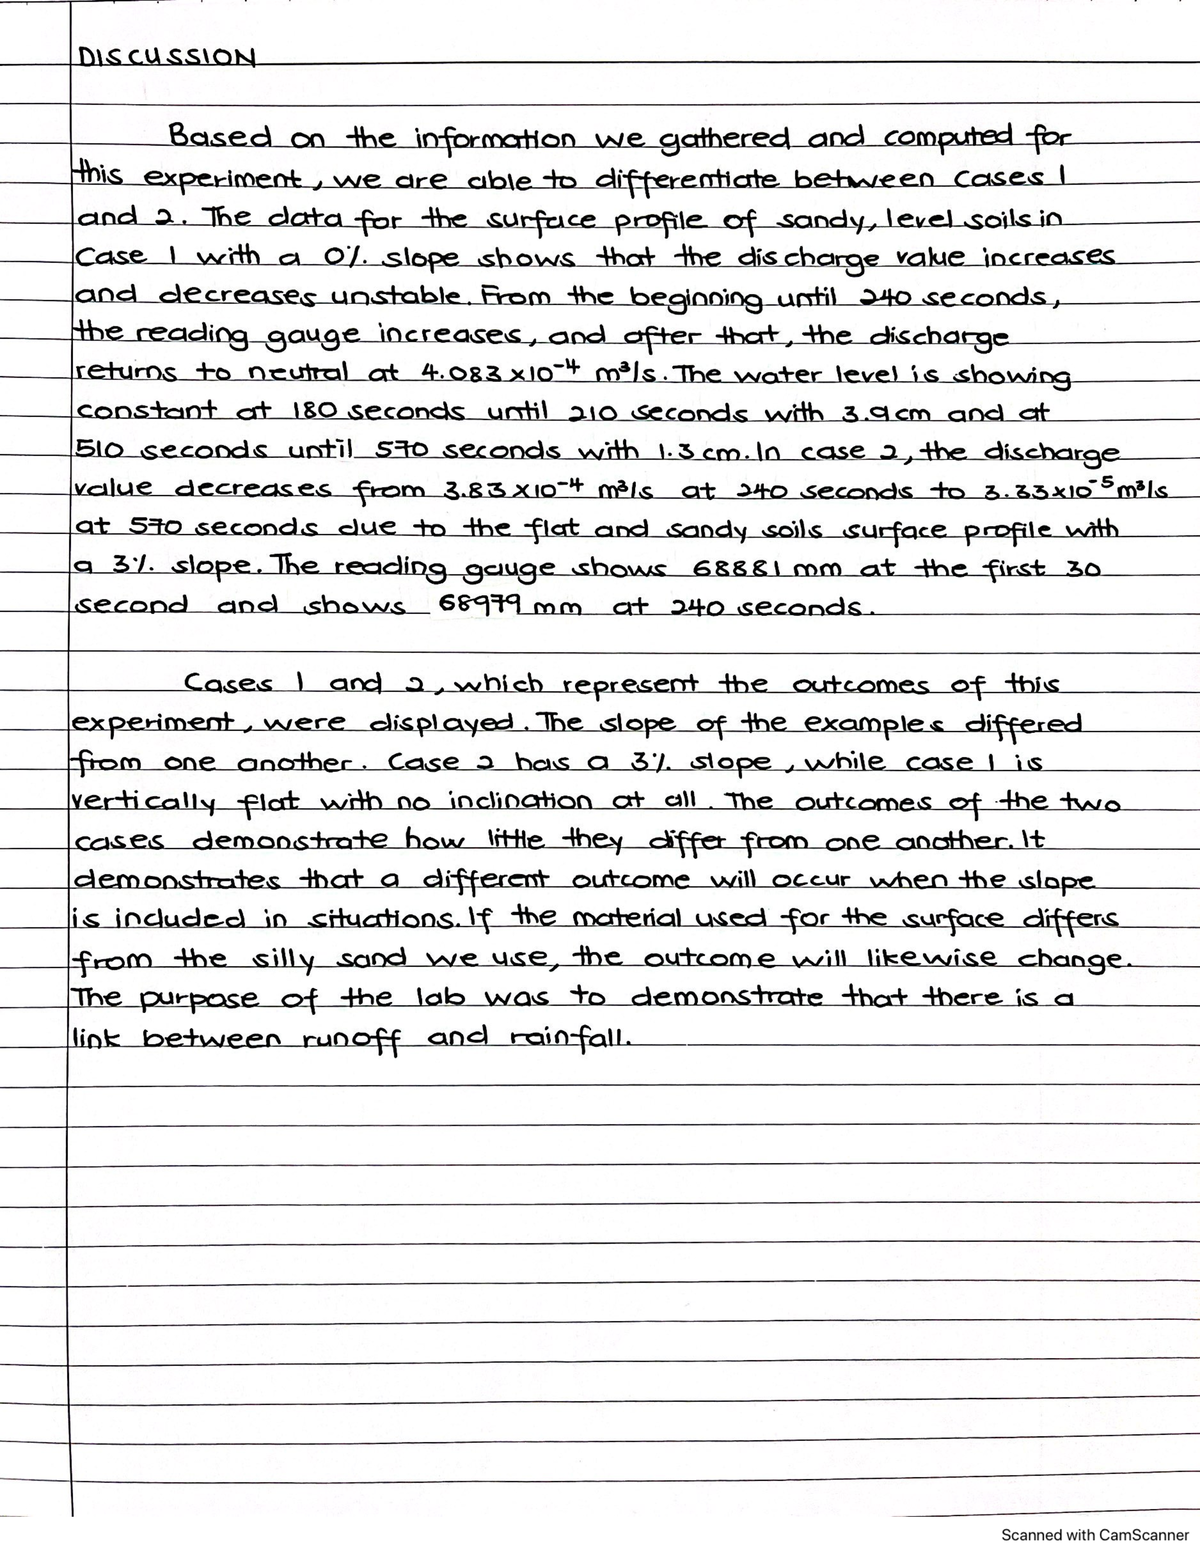 DISCUSSION
Based on the information we gathered and computed for
this experiment, we are able to differentiate between cases 1
and 2. The data for the surface profile of sandy, level soils in
Case 1 with a 0% slope shows that the discharge value increases
and decreases unstable. From the beginning until 240 seconds,
the reading gauge increases, and after that, the discharge
returns to neutral at 4.083 x10⁻⁴ m³/s. The water level is showing
constant at 180 seconds until 210 seconds with 3.9 cm and at
510 seconds until 570 seconds with 1.3 cm. In case 2, the discharge
value decreases from 3.83 x10⁻⁴ m³/s at 240 seconds to 3.33x10⁻⁵ m³/s
at 570 seconds due to the flat and sandy soils surface profile with
a 3% slope. The reading gauge shows 68881 mm at the first 30
second and shows 68979 mm at 240 seconds.
Cases 1 and 2, which represent the outcomes of this
experiment, were displayed. The slope of the examples differed
from one another. Case 2 has a 3% slope, while case 1 is
vertically flat with no inclination at all. The outcomes of the two
cases demonstrate how little they differ from one another. It
demonstrates that a different outcome will occur when the slope
is included in situations. If the material used for the surface differs
from the silly sand we use, the outcome will likewise change.
The purpose of the lab was to demonstrate that there is a
link between runoff and rainfall.
Scanned with CamScanner